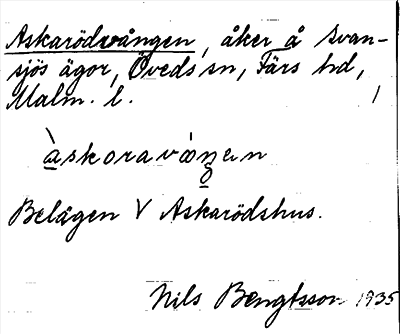 Askarödsvången, åker å Svan-
sjös ägor, Öveds sn, Färs hd,
Malm. l.
àskoravȧŋən
Belägen V Askarödshus.
Nils Bengtsson 1935